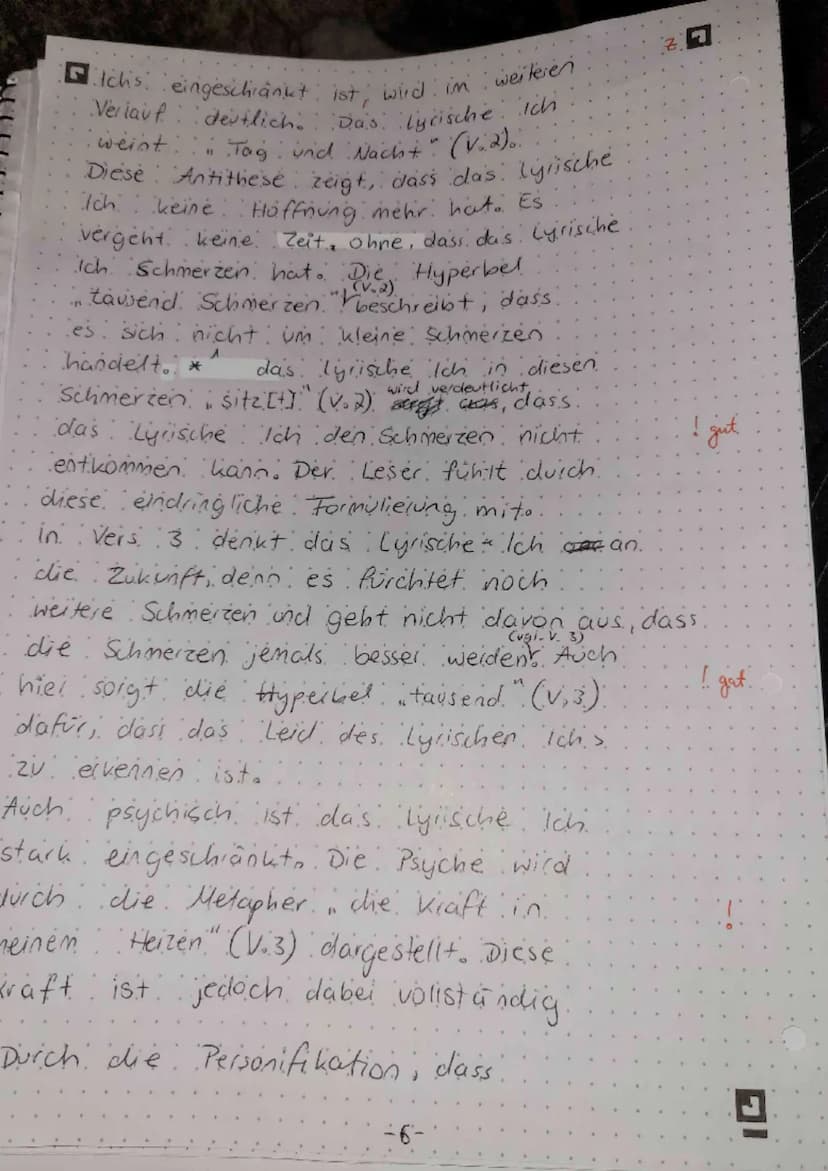 z.
Ichs eingeschränkt ist, wird im weiteren
Verlauf deutlich. Das Lyrische Ich
weint „Tag und Nacht" (V.2).
Diese Antithese zeigt, dass das Lyrische
Ich keine Hoffnung mehr hat. Es
vergeht keine Zeit, ohne, dass das Lyrische
Ich Schmerzen hat. Die Hyperbel
„tausend Schmerzen" (V.2) beschreibt, dass
es sich nicht um kleine Schmerzen
handelt. * das lyrische Ich in diesen
Schmerzen „sitz[t]" (V.2) wird verdeutlicht, dass
das Lyrische Ich den Schmerzen nicht
! gut
entkommen kann. Der Leser fühlt durch
diese eindringliche Formulierung mit.
In Vers 3 denkt das Lyrische Ich an
die Zukunft, denn es fürchtet noch
weitere Schmerzen und geht nicht davon aus, dass
die Schmerzen jemals besser werden (vgl. V. 3). Auch
hier sorgt die Hyperbel „tausend" (V.3)
! gut
dafür, dass das Leid des Lyrischen Ichs
zu erkennen ist.
Auch psychisch ist das Lyrische Ich
stark eingeschränkt. Die Psyche wird
durch die Metapher „die Kraft in
!
meinem Herzen" (V.3) dargestellt. Diese
Kraft ist jedoch dabei vollständig
Durch die Personifikation, dass
-6-